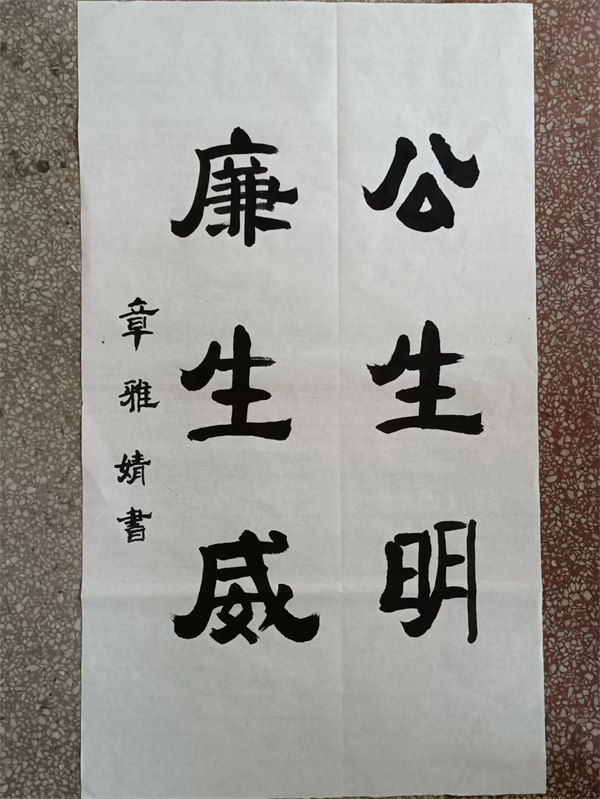 公生明
廉生威
章雅婧書